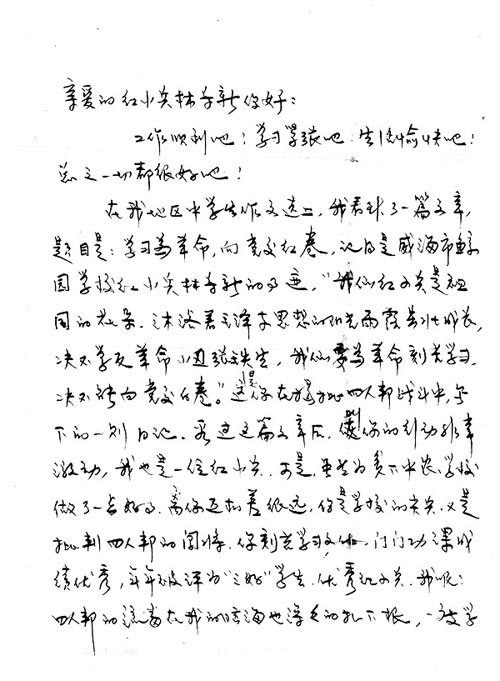 亲爱的红小兵林李新你好：
工作顺利吧！学习紧张吧 生活愉快吧！
总之一切都很好吧！
在我地区中学生作文选上，我看到了一篇文章，
题目是：学习为革命，向党交红卷，记的是威海市
园学校红小兵林李新的，“我们红小兵是祖
国的花朵。沐浴着毛泽东思想的阳光雨露茁壮成长，
决不学反革命小丑张铁生，我们要为革命刻苦学习
决不能向党交白卷。”这是你在揭批四人帮战斗中，写
下的一则日记。看过这篇文章后，你的行动非常
激动，我也是一位红小兵，可是，虽然为贫下中农、学校
做了一点好事，离你还相差很远，你是学校的尖兵，又是
批判四人帮的闯将，你刻苦学习文化，门门功课成
绩优秀，年年被评为“三好”学生、优秀红小兵。我呢：
四人帮的流毒在我的脑海也深深的扎下根，一度学